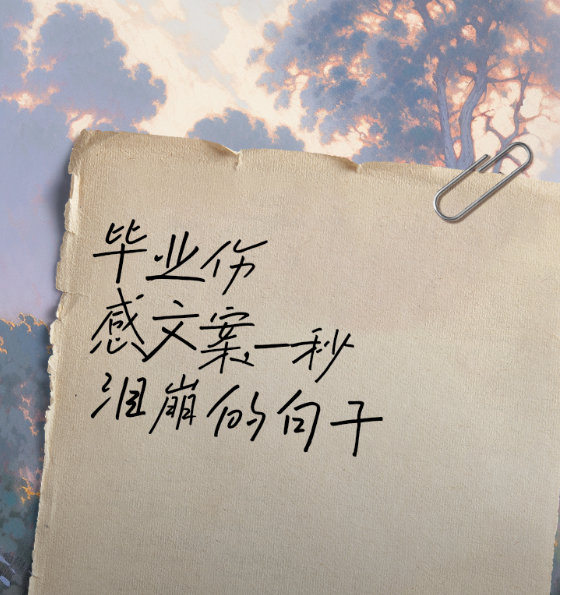 毕业伤
感文案,一秒
泪崩的句子